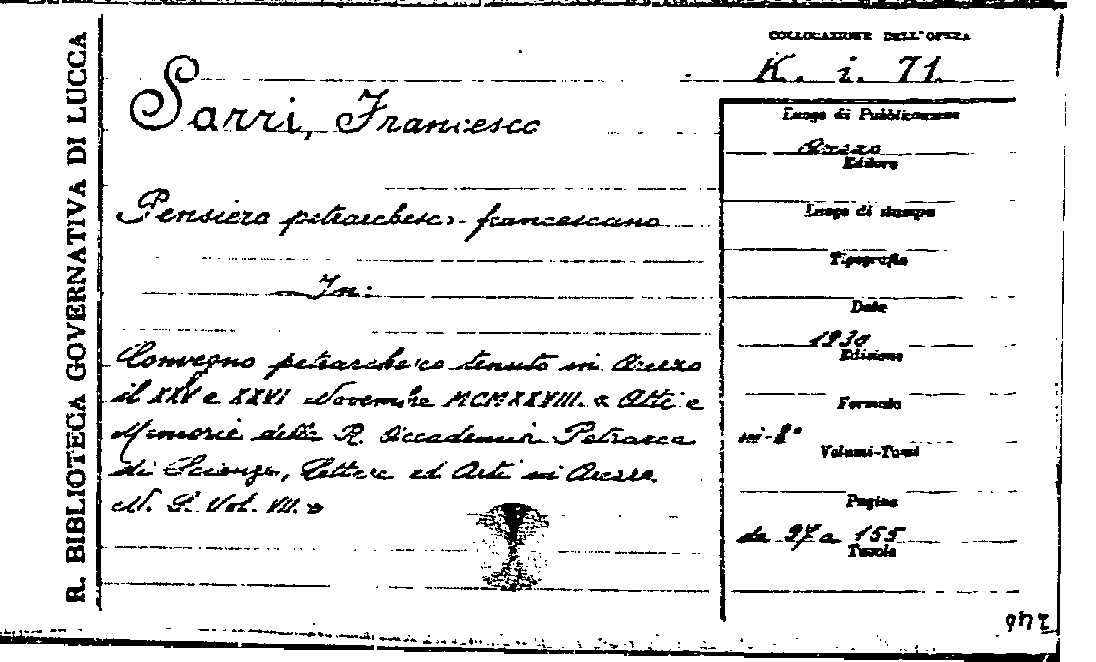 R. BIBLIOTECA GOVERNATIVA DI LUCCA
COLLOCAZIONE DELL'OPERA
K. i. 71.
Sarri, Francesco
Pensiero petrarchesco-francescano
In:
Convegno petrarchesco tenuto in Arezzo
il XXV e XXVI Novembre MCMXXVIII. « Atti e
Memorie della R. Accademia Petrarca
di Scienze, Lettere ed Arti in Arezzo.
N. S. Vol. VII. »
Luogo di Pubblicazione
Arezzo
Editore
Luogo di stampa
Tipografia
Date
1930
Edizione
Formato
in-8°
Volumi-Tomi
Pagine
da 97 a 155
Tavole